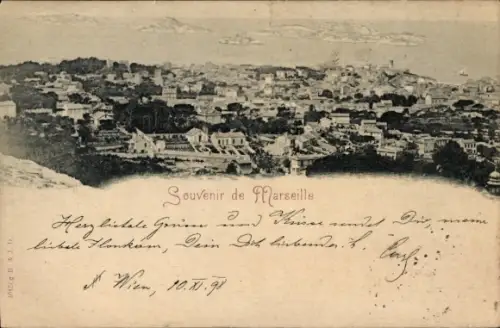 Souvenir de Marseille
Herzlichste Grüsse und Küsse sendet Dir, meine
liebste Dein Dich liebender
Wien, 10.XI.98